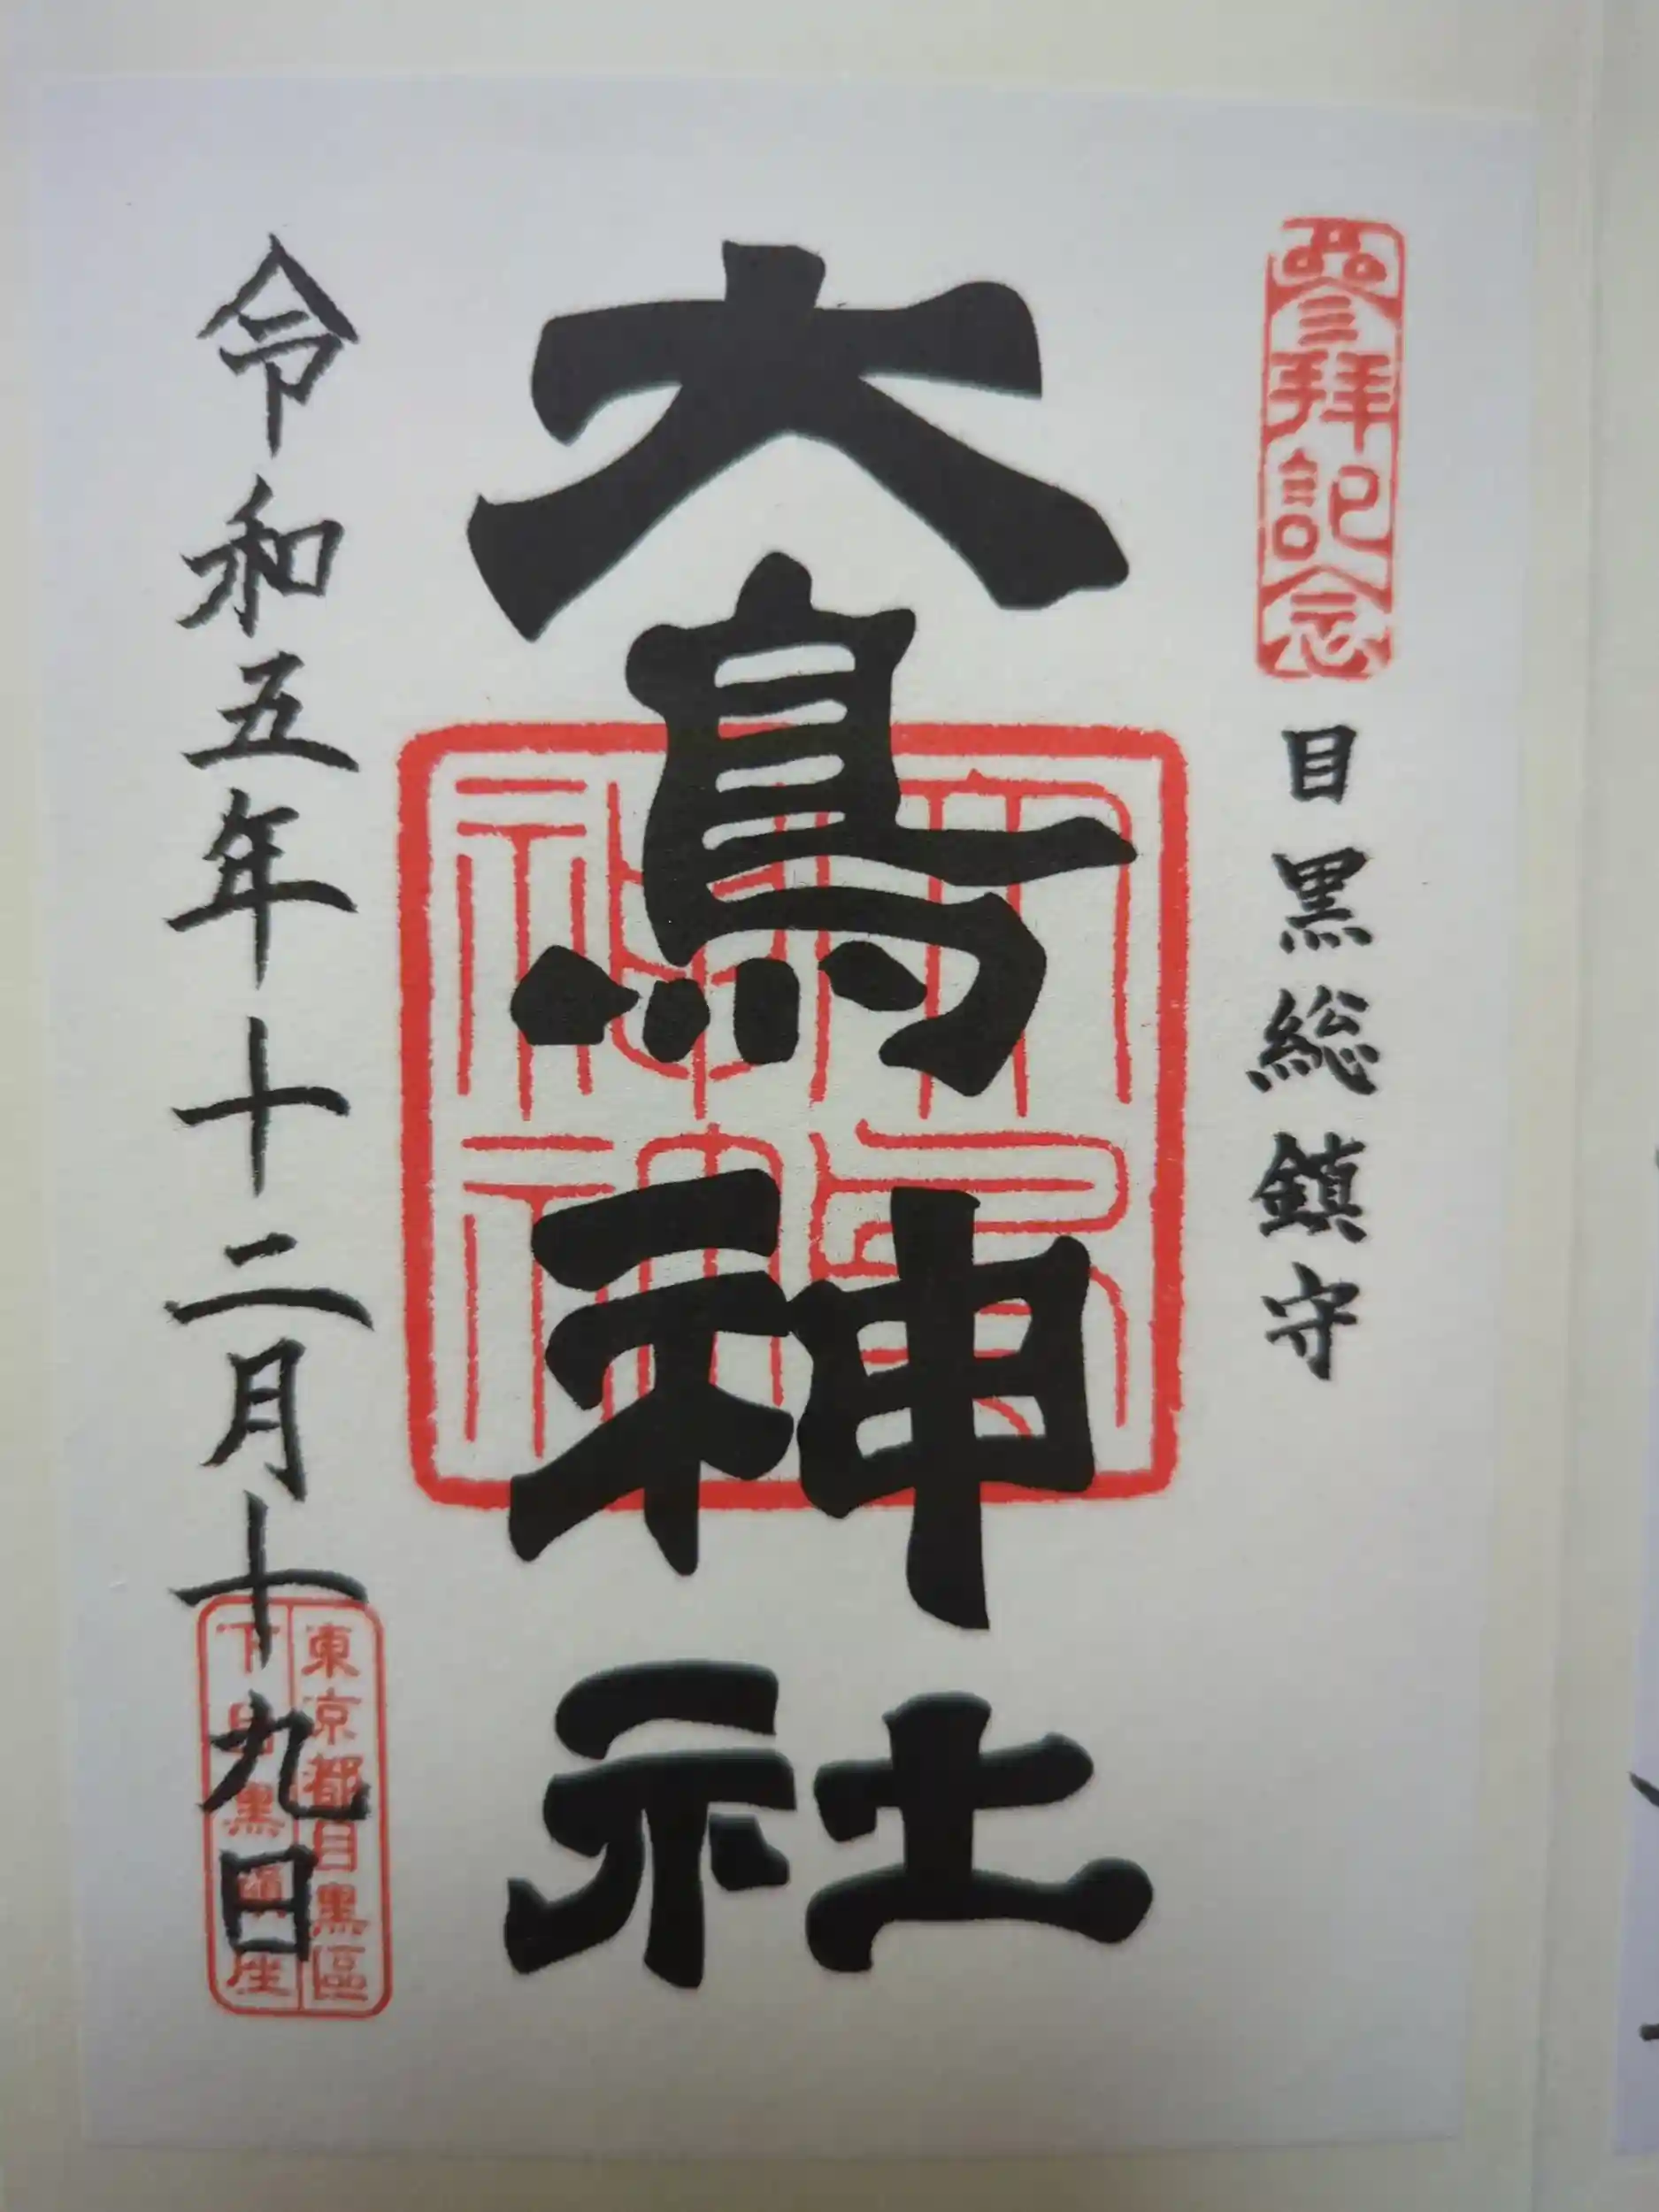 參拜記念
目黒総鎮守
大鳥神社
大鳥神社
令和五年十二月十九日
東京都目黒區
下目黒鎮座